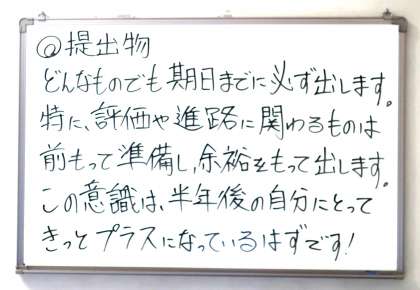 @提出物
どんなものでも期日までに必ず出します。
特に、評価や進路に関わるものは
前もって準備し、余裕をもって出します。
この意識は、半年後の自分にとって
きっとプラスになっているはずです!